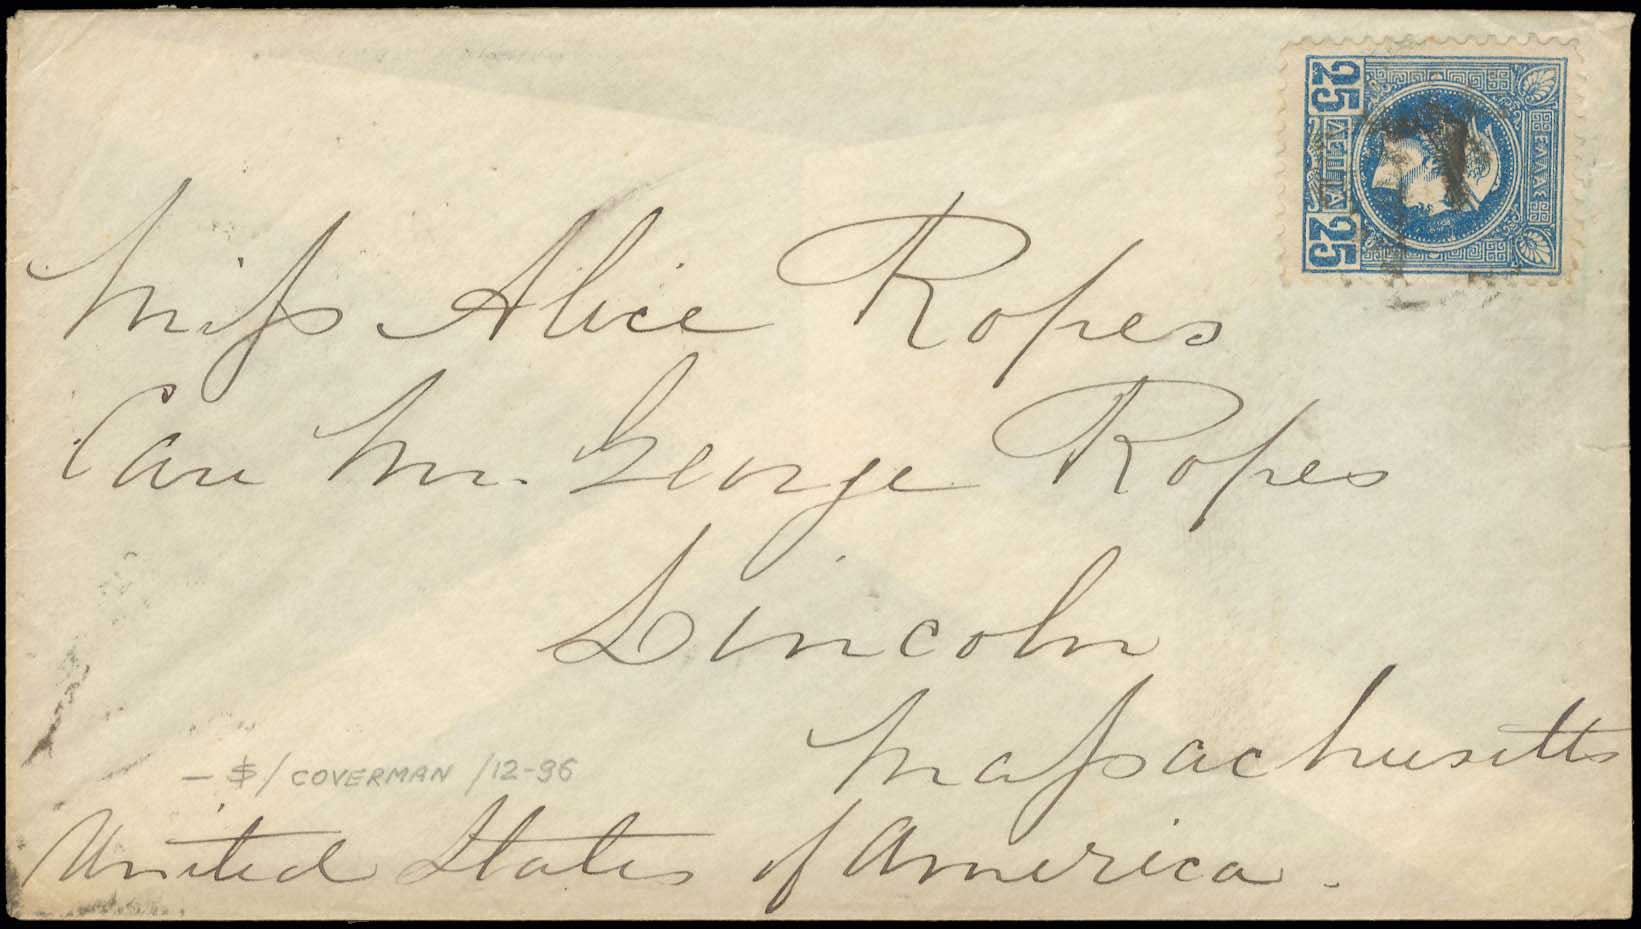 25 ΛΕΠΤΑ 25
ΕΛΛΑΣ
Miss Alice Ropes
Care Mr. George Ropes
Lincoln
Massachusetts
— $/ COVERMAN /12-96
United States of America.